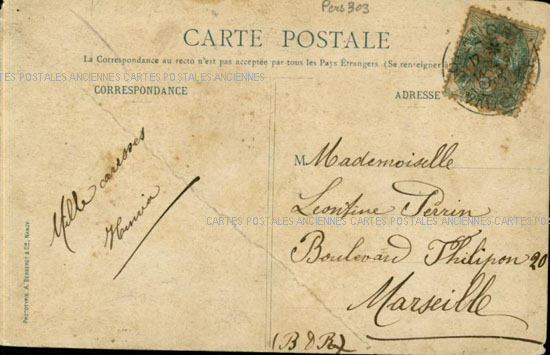 Pers 303
CARTE POSTALE
La Correspondance au recto n'est pas acceptée par tous les Pays Étrangers. (Se renseigner à
CARTES POSTALES ANCIENNES CARTES POSTALES ANCIENNES CARTES POSTALES ANCIENNES
CORRESPONDANCE
ADRESSE
Mille caresses
M. Mademoiselle
Leontine Perrin
CARTES POSTALES ANCIENNES CARTES POSTALES ANCIENNES
Boulevard Philipon 20
Marseille
(B d R)
PHOTOTYPIE A. BERGERET & Cie, NANCY